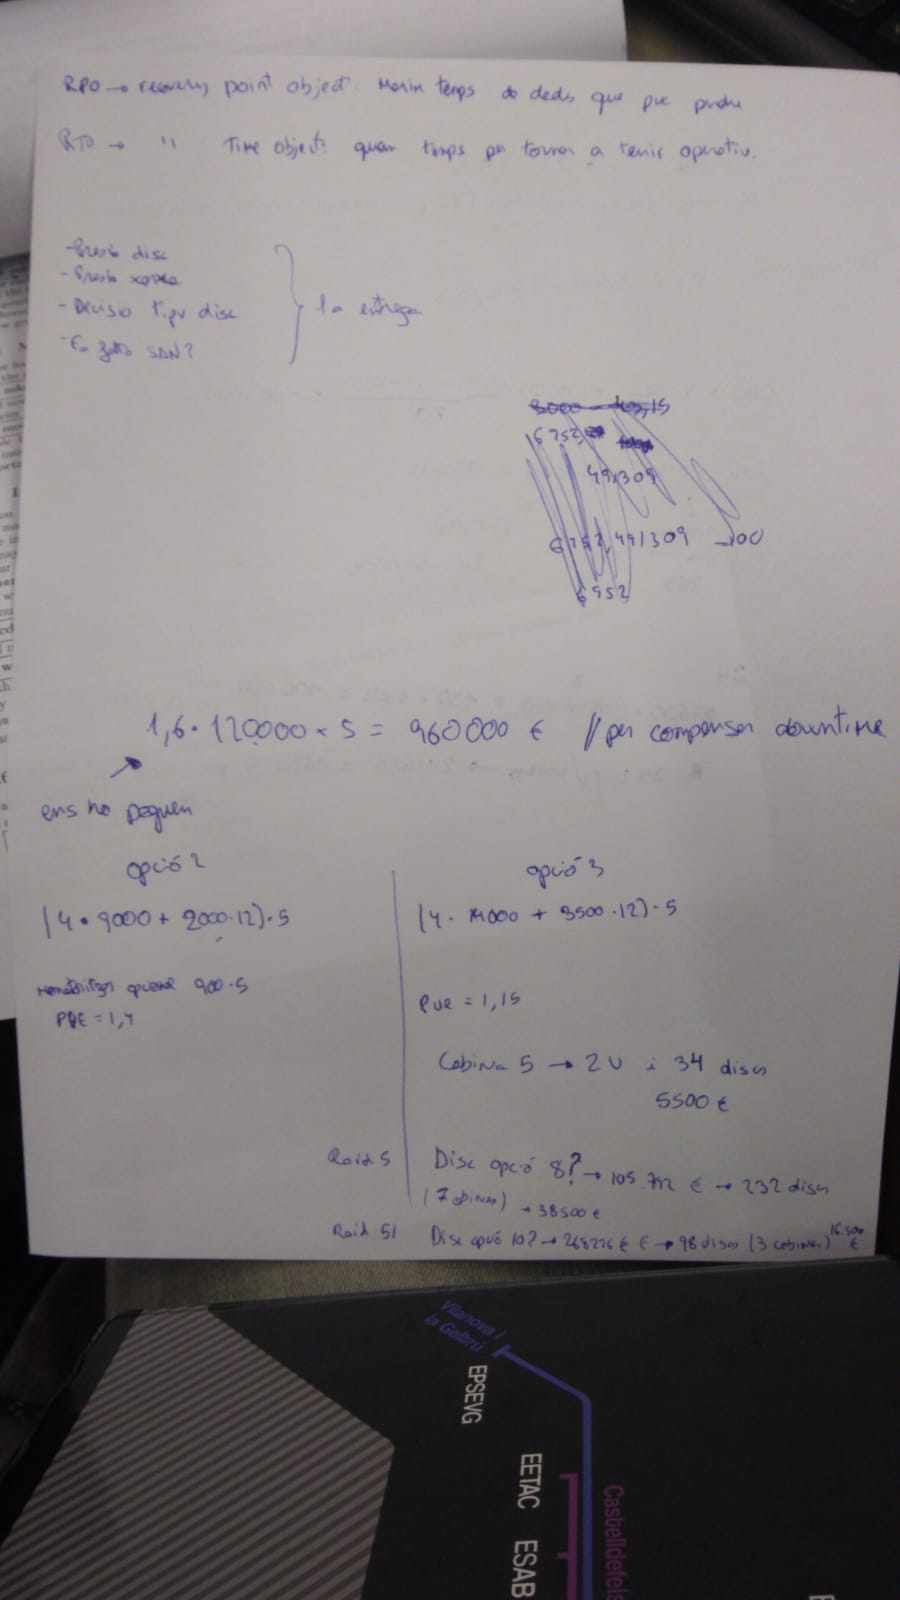 RPO → recovery point object: Maxim temps de dades que puc perdre
RTO → " Time object: quan temps per tornar a tenir operatiu.
disc
- Decisió tipu disc
SAN?
1a entrega
6752,
49,309
6752,491309 -100
6952
1,6 · 120000 × 5 = 960000 € // per compensar downtime
ens ho paguen
opció 2
(4 · 9000 + 2000·12)·5
900·5
PUE = 1,4
opció 3
+ 3500 ·12)·5
PUE = 1,15
Cabina 5 → 2U i 34 discs
5500 €
Raid 5
Disc opció 8? → 105.792 € → 232 discs
(7 cabines) → 38500 €
Raid 51
Disc opció 10? → 268226 € € → 98 discs (3 cabines) 16.500 €
Vilanova i
la Geltrú
EPSEVG
EETAC
ESAB
Castelldefels